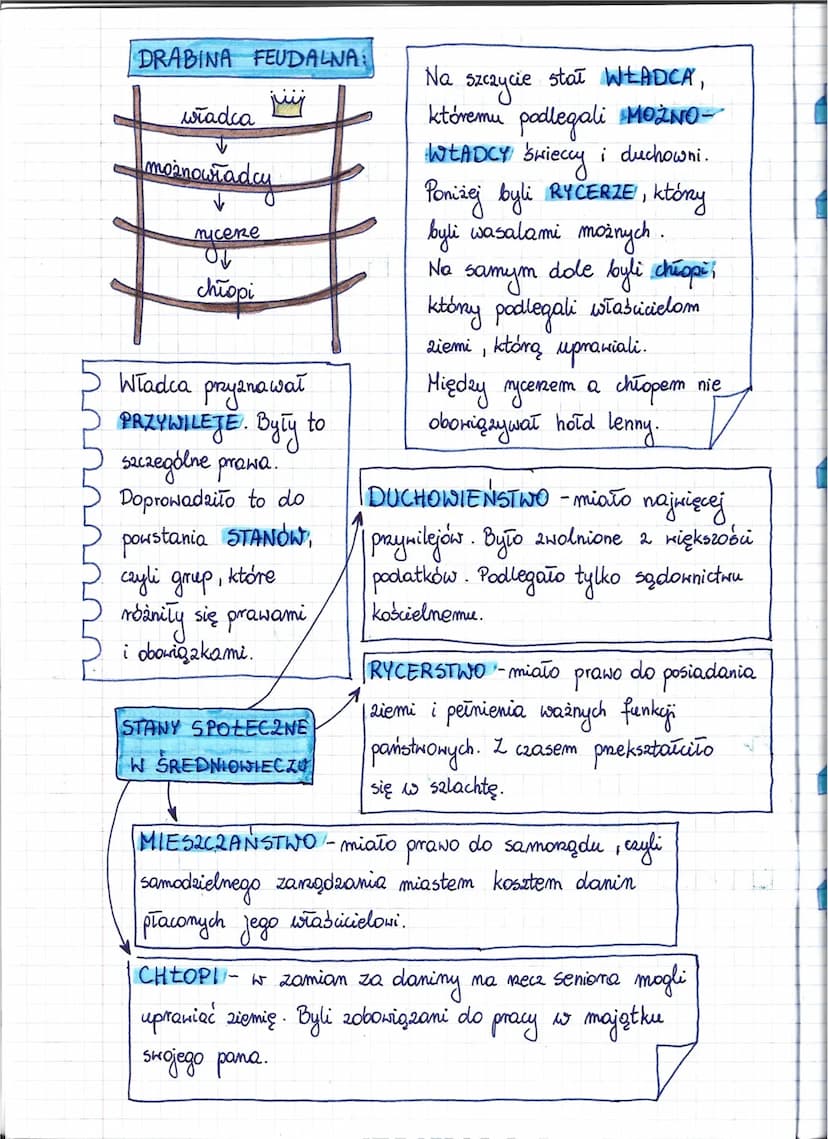 DRABINA FEUDALNA:
władca
możnowładcy
rycerze
chłopi
Na szczycie stał WŁADCA,
któremu podlegali MOŻNO-
WŁADCY świeccy i duchowni.
Poniżej byli RYCERZE, którzy
byli wasalami możnych.
Na samym dole byli chłopi,
którzy podlegali właścicielom
ziemi, którą uprawiali.
Między rycerzem a chłopem nie
obowiązywał hołd lenny.
Władca przyznawał
PRZYWILEJE. Były to
szczególne prawa.
Doprowadziło to do
powstania STANÓW,
czyli grup, które
różniły się prawami
i obowiązkami.
DUCHOWIEŃSTWO - miało najwięcej
przywilejów. Było zwolnione z większości
podatków. Podlegało tylko sądownictwu
kościelnemu.
RYCERSTWO - miało prawo do posiadania
ziemi i pełnienia ważnych funkcji
państwowych. Z czasem przekształciło
się w szlachtę.
STANY SPOŁECZNE
W ŚREDNIOWIECZU
MIESZCZAŃSTWO - miało prawo do samorządu, czyli
samodzielnego zarządzania miastem kosztem danin
płaconych jego właścicielowi.
CHŁOPI - w zamian za daniny na rzecz seniora mogli
uprawiać ziemię. Byli zobowiązani do pracy w majątku
swojego pana.